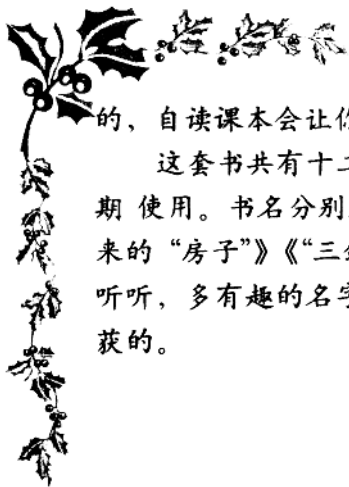 的，自读课本会让你
这套书共有十二
期 使用。书名分别
来的“房子”》《“三
听听，多有趣的名字
获的。